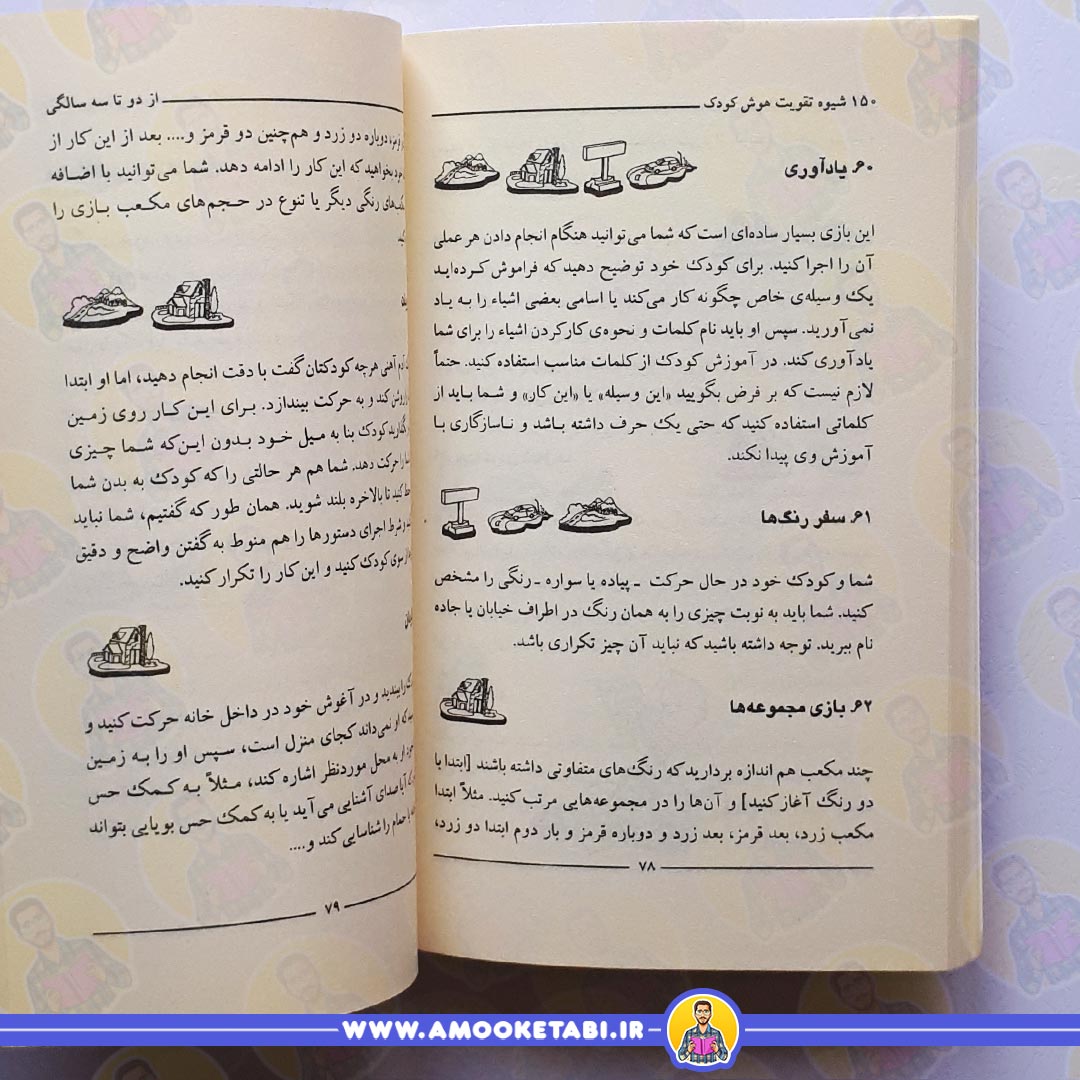 ۱۵۰ شیوه تقویت هوش کودک
۶۰. یادآوری
این بازی بسیار ساده‌ای است که شما می‌توانید هنگام انجام دادن هر عملی
آن را اجرا کنید. برای کودک خود توضیح دهید که فراموش کرده‌اید
یک وسیله‌ی خاص چگونه کار می‌کند یا اسامی بعضی اشیاء را به یاد
نمی‌آورید. سپس او باید نام کلمات و نحوه‌ی کارکردن اشیاء را برای شما
یادآوری کند. در آموزش کودک از کلمات مناسب استفاده کنید. حتماً
لازم نیست که بر فرض بگویید «این وسیله» یا «این کار» و شما باید از
کلماتی استفاده کنید که حتی یک حرف داشته باشد و ناسازگاری با
آموزش وی پیدا نکند.
۶۱. سفر رنگ‌ها
شما و کودک خود در حال حرکت - پیاده یا سواره - رنگی را مشخص
کنید. شما باید به نوبت چیزی را به همان رنگ در اطراف خیابان یا جاده
نام ببرید. توجه داشته باشید که نباید آن چیز تکراری باشد.
۶۲. بازی مجموعه‌ها
چند مکعب هم اندازه بردارید که رنگ‌های متفاوتی داشته باشند [ابتدا با
دو رنگ آغاز کنید] و آن‌ها را در مجموعه‌هایی مرتب کنید. مثلاً ابتدا
مکعب زرد، بعد قرمز، بعد زرد و دوباره قرمز و بار دوم ابتدا دو زرد،
۷۸
از دو تا سه سالگی
دوباره دو زرد و هم‌چنین دو قرمز و.... بعد از این کار از
بخواهید که این کار را ادامه دهد. شما می‌توانید با اضافه
رنگی دیگر یا تنوع در حجم‌های مکعب بازی را
آهنی هرچه کودکتان گفت با دقت انجام دهید، اما او ابتدا
روشن کند و به حرکت بیندازد. برای این کار روی زمین
کودک بنا به میل خود بدون این‌که شما چیزی
را حرکت دهد. شما هم هر حالتی را که کودک به بدن شما
کنید تا بالاخره بلند شوید. همان طور که گفتیم، شما نباید
شرط اجرای دستورها را هم منوط به گفتن واضح و دقیق
از سوی کودک کنید و این کار را تکرار کنید.
را ببندید و در آغوش خود در داخل خانه حرکت کنید و
که او نمی‌داند کجای منزل است، سپس او را به زمین
به محل موردنظر اشاره کند، مثلاً به کمک حس
آیا صدای آشنایی می‌آید یا به کمک حس بویایی بتواند
حمام را شناسایی کند و....
۷۹
WWW.AMOOKETABI.IR